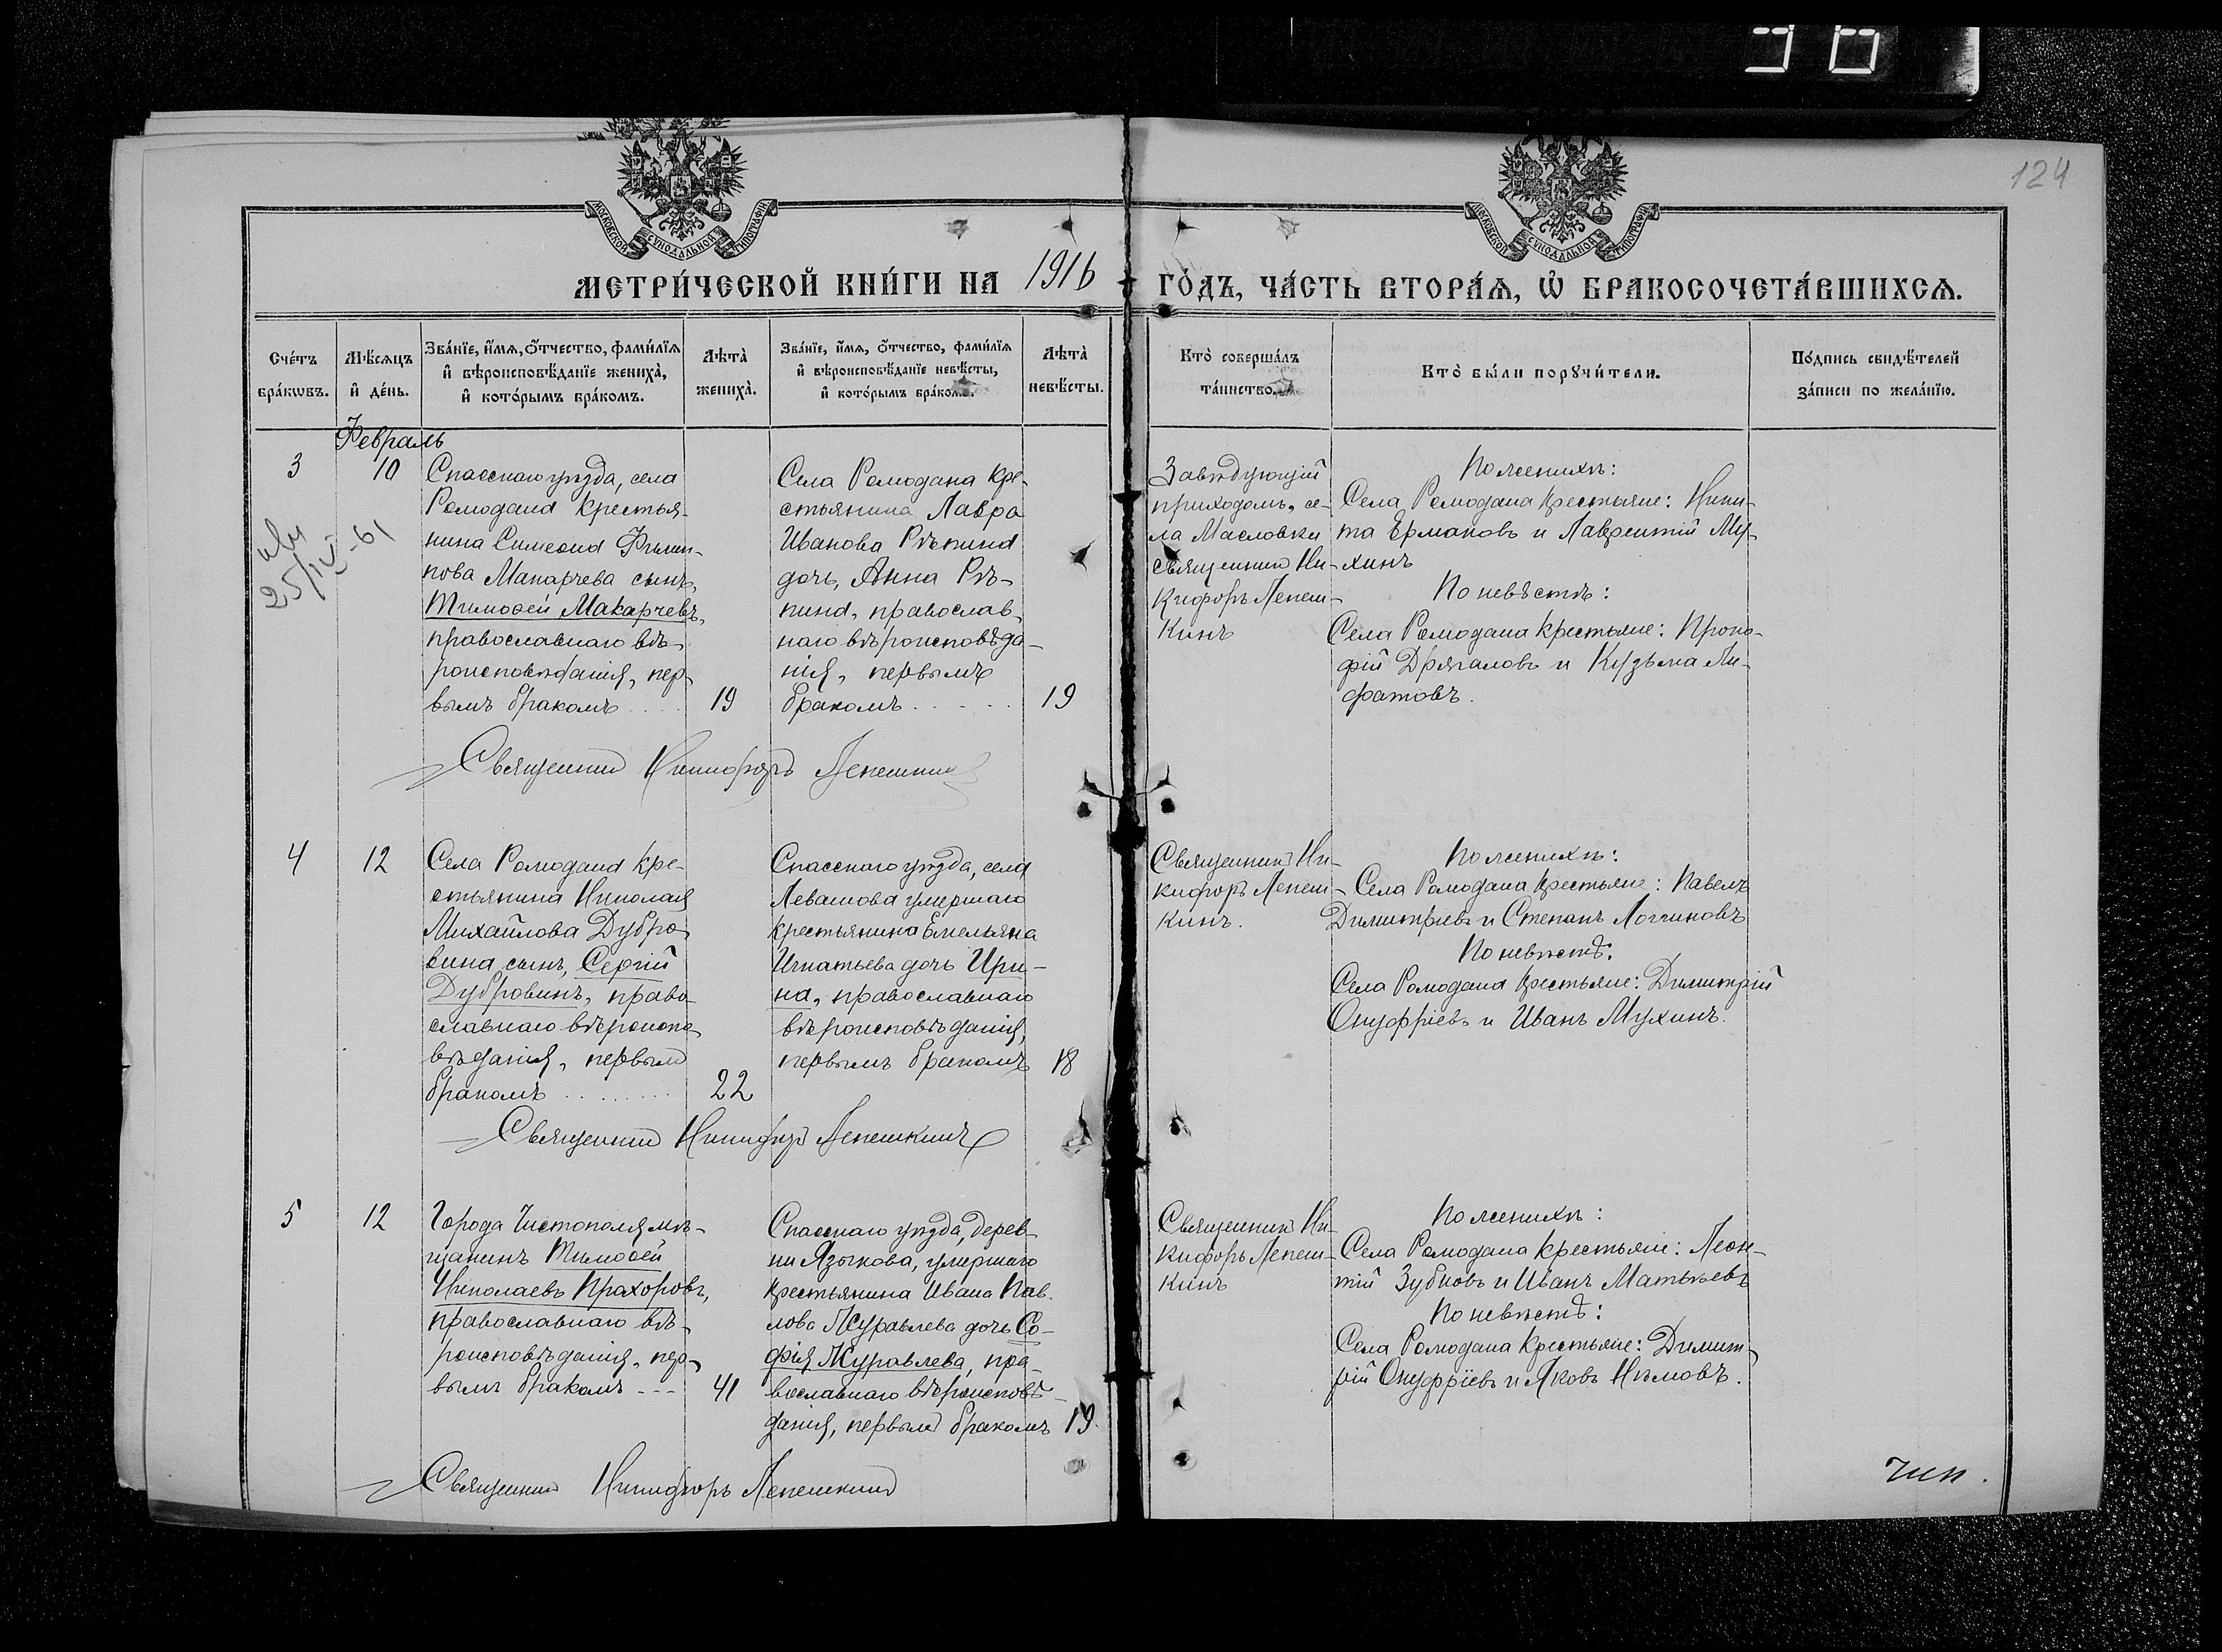 98
124
МОСКОВСКОЙ СУНОДАЛЬНОЙ ТИПОГРАФІИ
МОСКОВСКОЙ СУНОДАЛЬНОЙ ТИПОГРАФІИ
МЕТРИ́ЧЕСКОЙ КНИ́ГИ НА 1916 ГО́ДЪ, ЧА́СТЬ ВТОРА́Ѧ, Ѽ БРАКОСОЧЕТА́ВШИХСѦ.
Сче́тъ бра́кѡвъ.
Мѣ́сяцъ и҆ де́нь.
Зва́нїе, и҆́мѧ, ѻ҆́тчество, фами́лїѧ
и҆ вѣроисповѣ́данїе жениха̀,
и҆ кото́рымъ бра́комъ.
Лѣта̀ жениха̀.
Зва́нїе, и҆́мѧ, ѻ҆́тчество, фами́лїѧ
и҆ вѣроисповѣ́данїе невѣ́сты,
и҆ кото́рымъ бра́комъ.
Лѣта̀ невѣ́сты.
Кто̀ соверша́лъ та́инство.
Кто̀ бы́ли порꙋчи́тели.
По́дпись свидѣ́телей за́писи по жела́нїю.
Февраль
3
10
25/IV-61
Спасскаго уѣзда, села
Ромодана крестья-
нина Симеона Филип-
пова Макарчева сынъ,
Тимоѳей Макарчевъ,
православнаго вѣ-
роисповѣданія, пер-
вымъ бракомъ . . . .
19
Села Ромодана кре-
стьянина Лавра
Иванова Рѣпина
дочь, Анна Рѣ-
пина, православ-
наго вѣроисповѣда-
нія, первымъ
бракомъ . . . . .
19
Завѣдующій
приходомъ, се-
ла Масловки
священникъ Ни-
кифоръ Лепеш-
кинъ
По женихѣ:
Села Ромодана крестьяне: Ники-
та Ермаковъ и Лаврентій Му-
хинъ
По невѣстѣ:
Села Ромодана крестьяне: Проко-
фій Дрягаловъ и Кузьма Ли-
фатовъ.
Священникъ Никифоръ Лепешкинъ
4
12
Села Ромодана кре-
стьянина Николая
Михайлова Дубро-
вина сынъ, Сергій
Дубровинъ, право-
славнаго вѣроиспо-
вѣданія, первымъ
бракомъ . . . . . . . .
22
Спасскаго уѣзда, села
Левашова умершаго
крестьянина Емельяна
Игнатьева дочь Ири-
на, православнаго
вѣроисповѣданія,
первымъ бракомъ
18
Священникъ Ни-
кифоръ Лепеш-
кинъ.
По женихѣ:
Села Ромодана крестьяне: Павелъ
Димитріевъ и Степанъ Логгиновъ
По невѣстѣ:
Села Ромодана крестьяне: Димитрій
Онуфріевъ и Иванъ Мухинъ.
Священникъ Никифоръ Лепешкинъ
5
12
Города Чистополя мѣ-
щанинъ Тимоѳей
Николаевъ Прахоровъ,
православнаго вѣ-
роисповѣданія, пер-
вымъ бракомъ - - -
41
Спасскаго уѣзда, дерев-
ни Языкова, умершаго
крестьянина Ивана Пав-
лова Журавлева дочь Со-
фія Журавлева, пра-
вославнаго вѣроисповѣ-
данія, первымъ бракомъ
19.
Священникъ Ни-
кифоръ Лепеш-
кинъ
По женихѣ:
Села Ромодана крестьяне: Леон-
тій Зубковъ и Иванъ Матвѣевъ
По невѣстѣ:
Села Ромодана крестьяне: Димит-
рій Онуфріевъ и Яковъ Наумовъ.
Священникъ Никифоръ Лепешкинъ